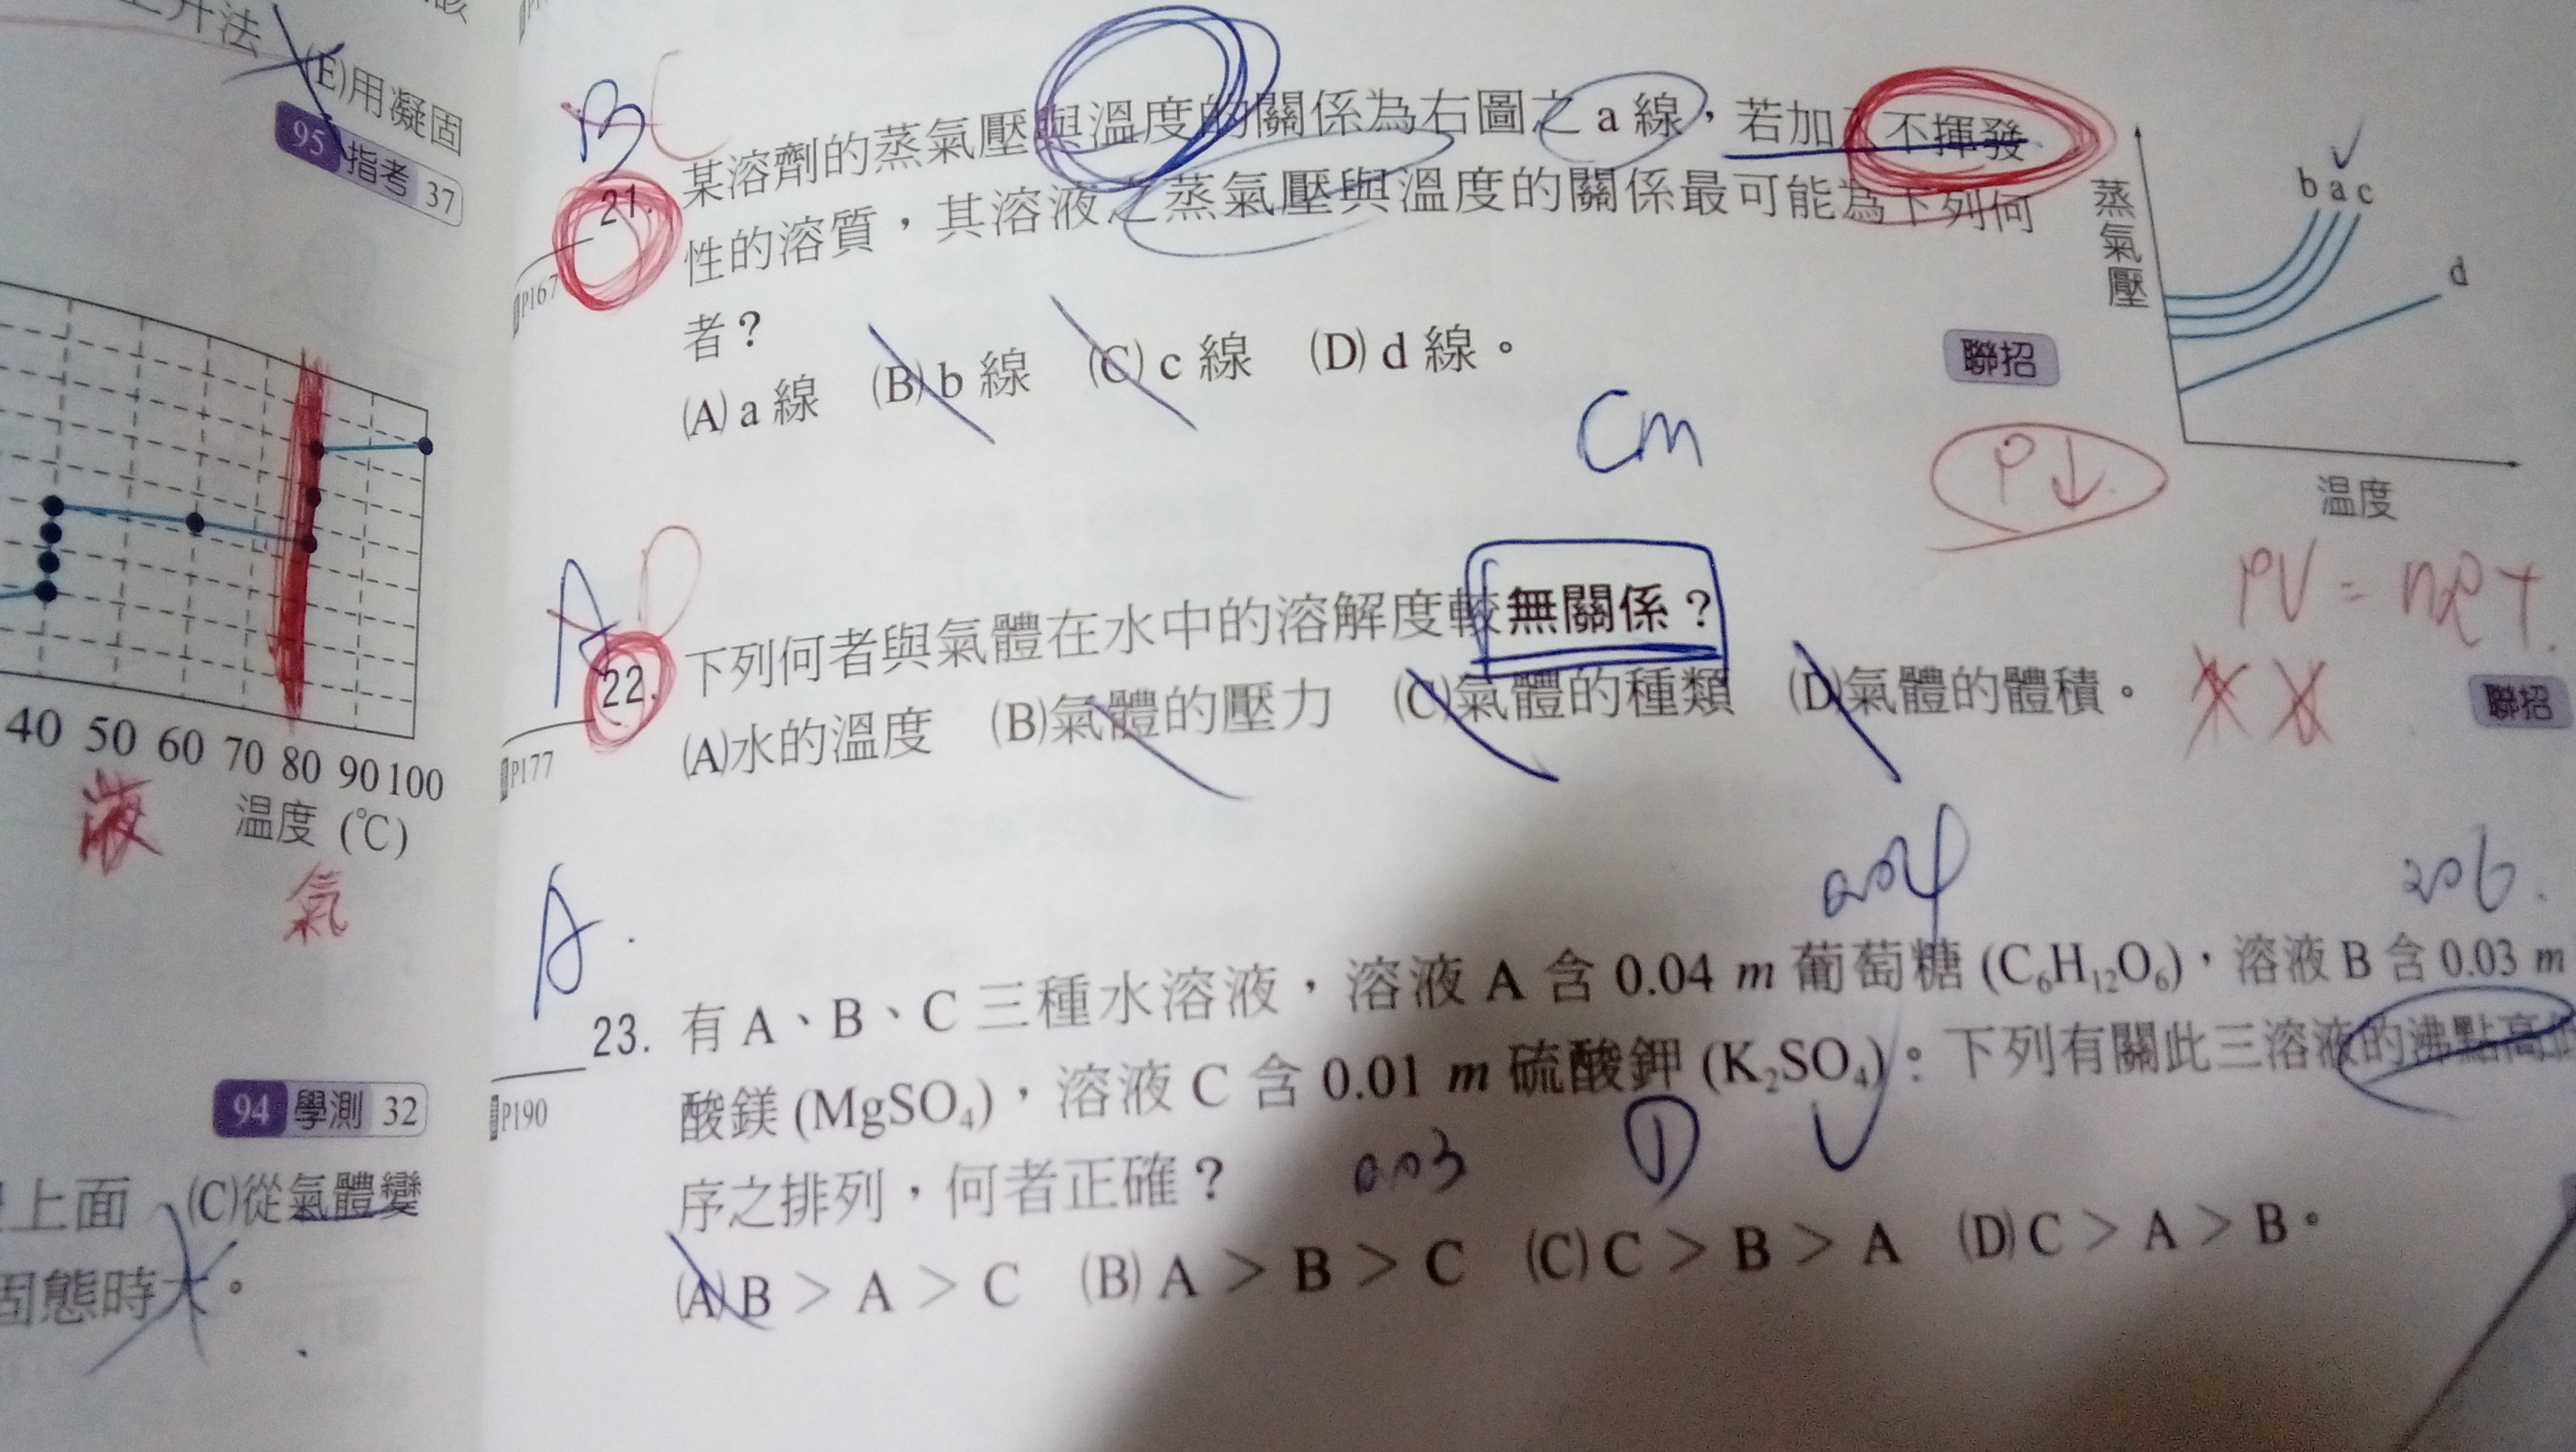 上升法
(E)用凝固
95 指考 37
40 50 60 70 80 90 100
溫度 (℃)
液
氣
94 學測 32
上面 (C)從氣體變
固態時大。
B C
21. 某溶劑的蒸氣壓與溫度的關係為右圖之 a 線，若加入不揮發
性的溶質，其溶液之蒸氣壓與溫度的關係最可能為下列何
P167
者？
(A) a 線 (B) b 線 (C) c 線 (D) d 線。
聯招
蒸氣壓
b a c
d
溫度
Cm
P↓
PV = nRT
A D
22. 下列何者與氣體在水中的溶解度較無關係？
(A)水的溫度 (B)氣體的壓力 (C)氣體的種類 (D)氣體的體積。
聯招
P177
A
0.04
0.06
23. 有 A、B、C 三種水溶液，溶液 A 含 0.04 m 葡萄糖 (C₆H₁₂O₆)，溶液 B 含 0.03 m
酸鎂 (MgSO₄)，溶液 C 含 0.01 m 硫酸鉀 (K₂SO₄)。下列有關此三溶液的沸點高低
P190
序之排列，何者正確？
0.03
(A) B > A > C (B) A > B > C (C) C > B > A (D) C > A > B。